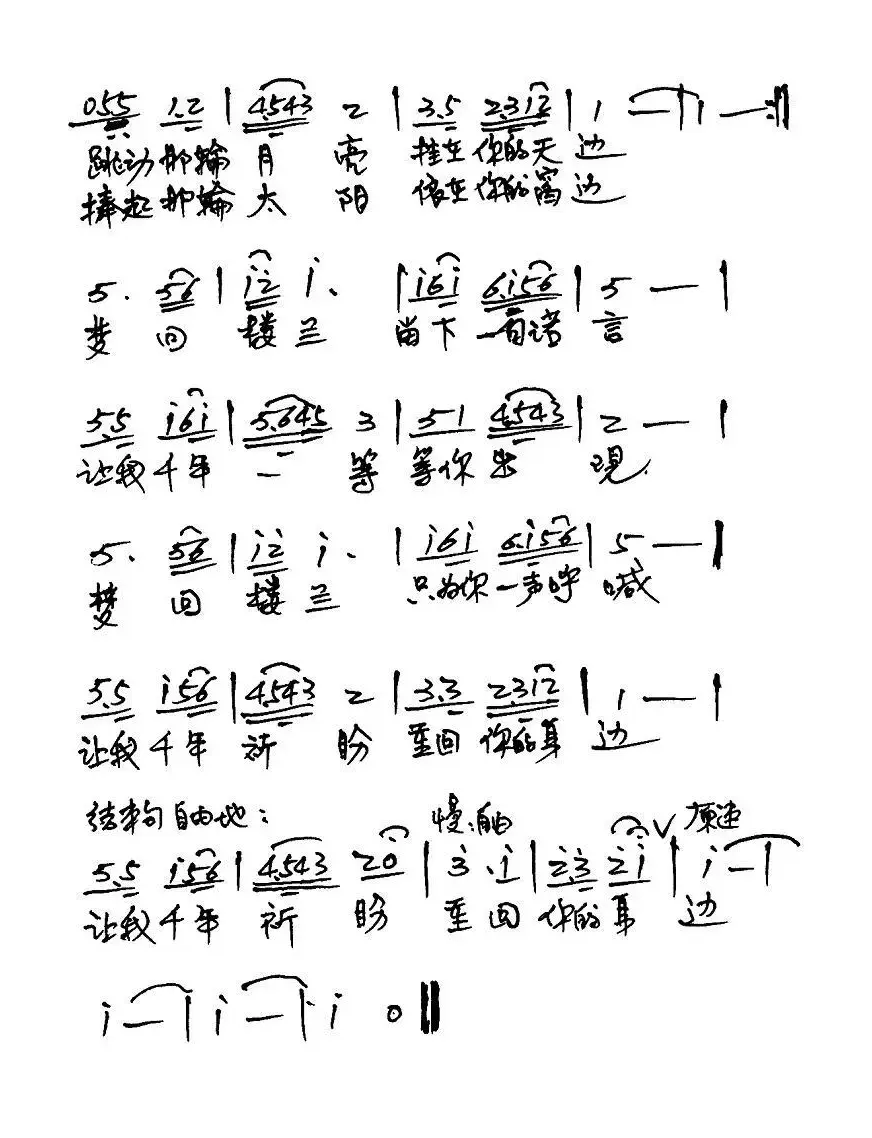 0.5 5 1.2 | 4.543 2 | 3.5 2.312 | 1 — | 1 — :‖
跳动那轮月 亮 挂在你的天边
捧起那轮太 阳 偎在你的窗边
5. 56 | i2̇ i. | i6i 6.i56 | 5 — |
梦 回 楼兰 留下一句诺言
5.5 i6i | 5.645 3 | 51 4.543 | 2 — |
让我千年一 等 等你出 现.
5. 56 | i2̇ i. | i6i 6.i56 | 5 — |
梦 回 楼兰 只为你一声呼 喊
5.5 i56 | 4.543 2 | 3.3 2.312 | 1 — |
让我千年 祈 盼 重回 你的耳 边
结束句 自由地: 慢.自由 原速
5.5 i56 | 4.543 20 | 3̇ . i | 2̇.3̇ 2̇i | i — |
让我千年 祈 盼 重回 你的耳 边
i — | i — | i 0 ‖